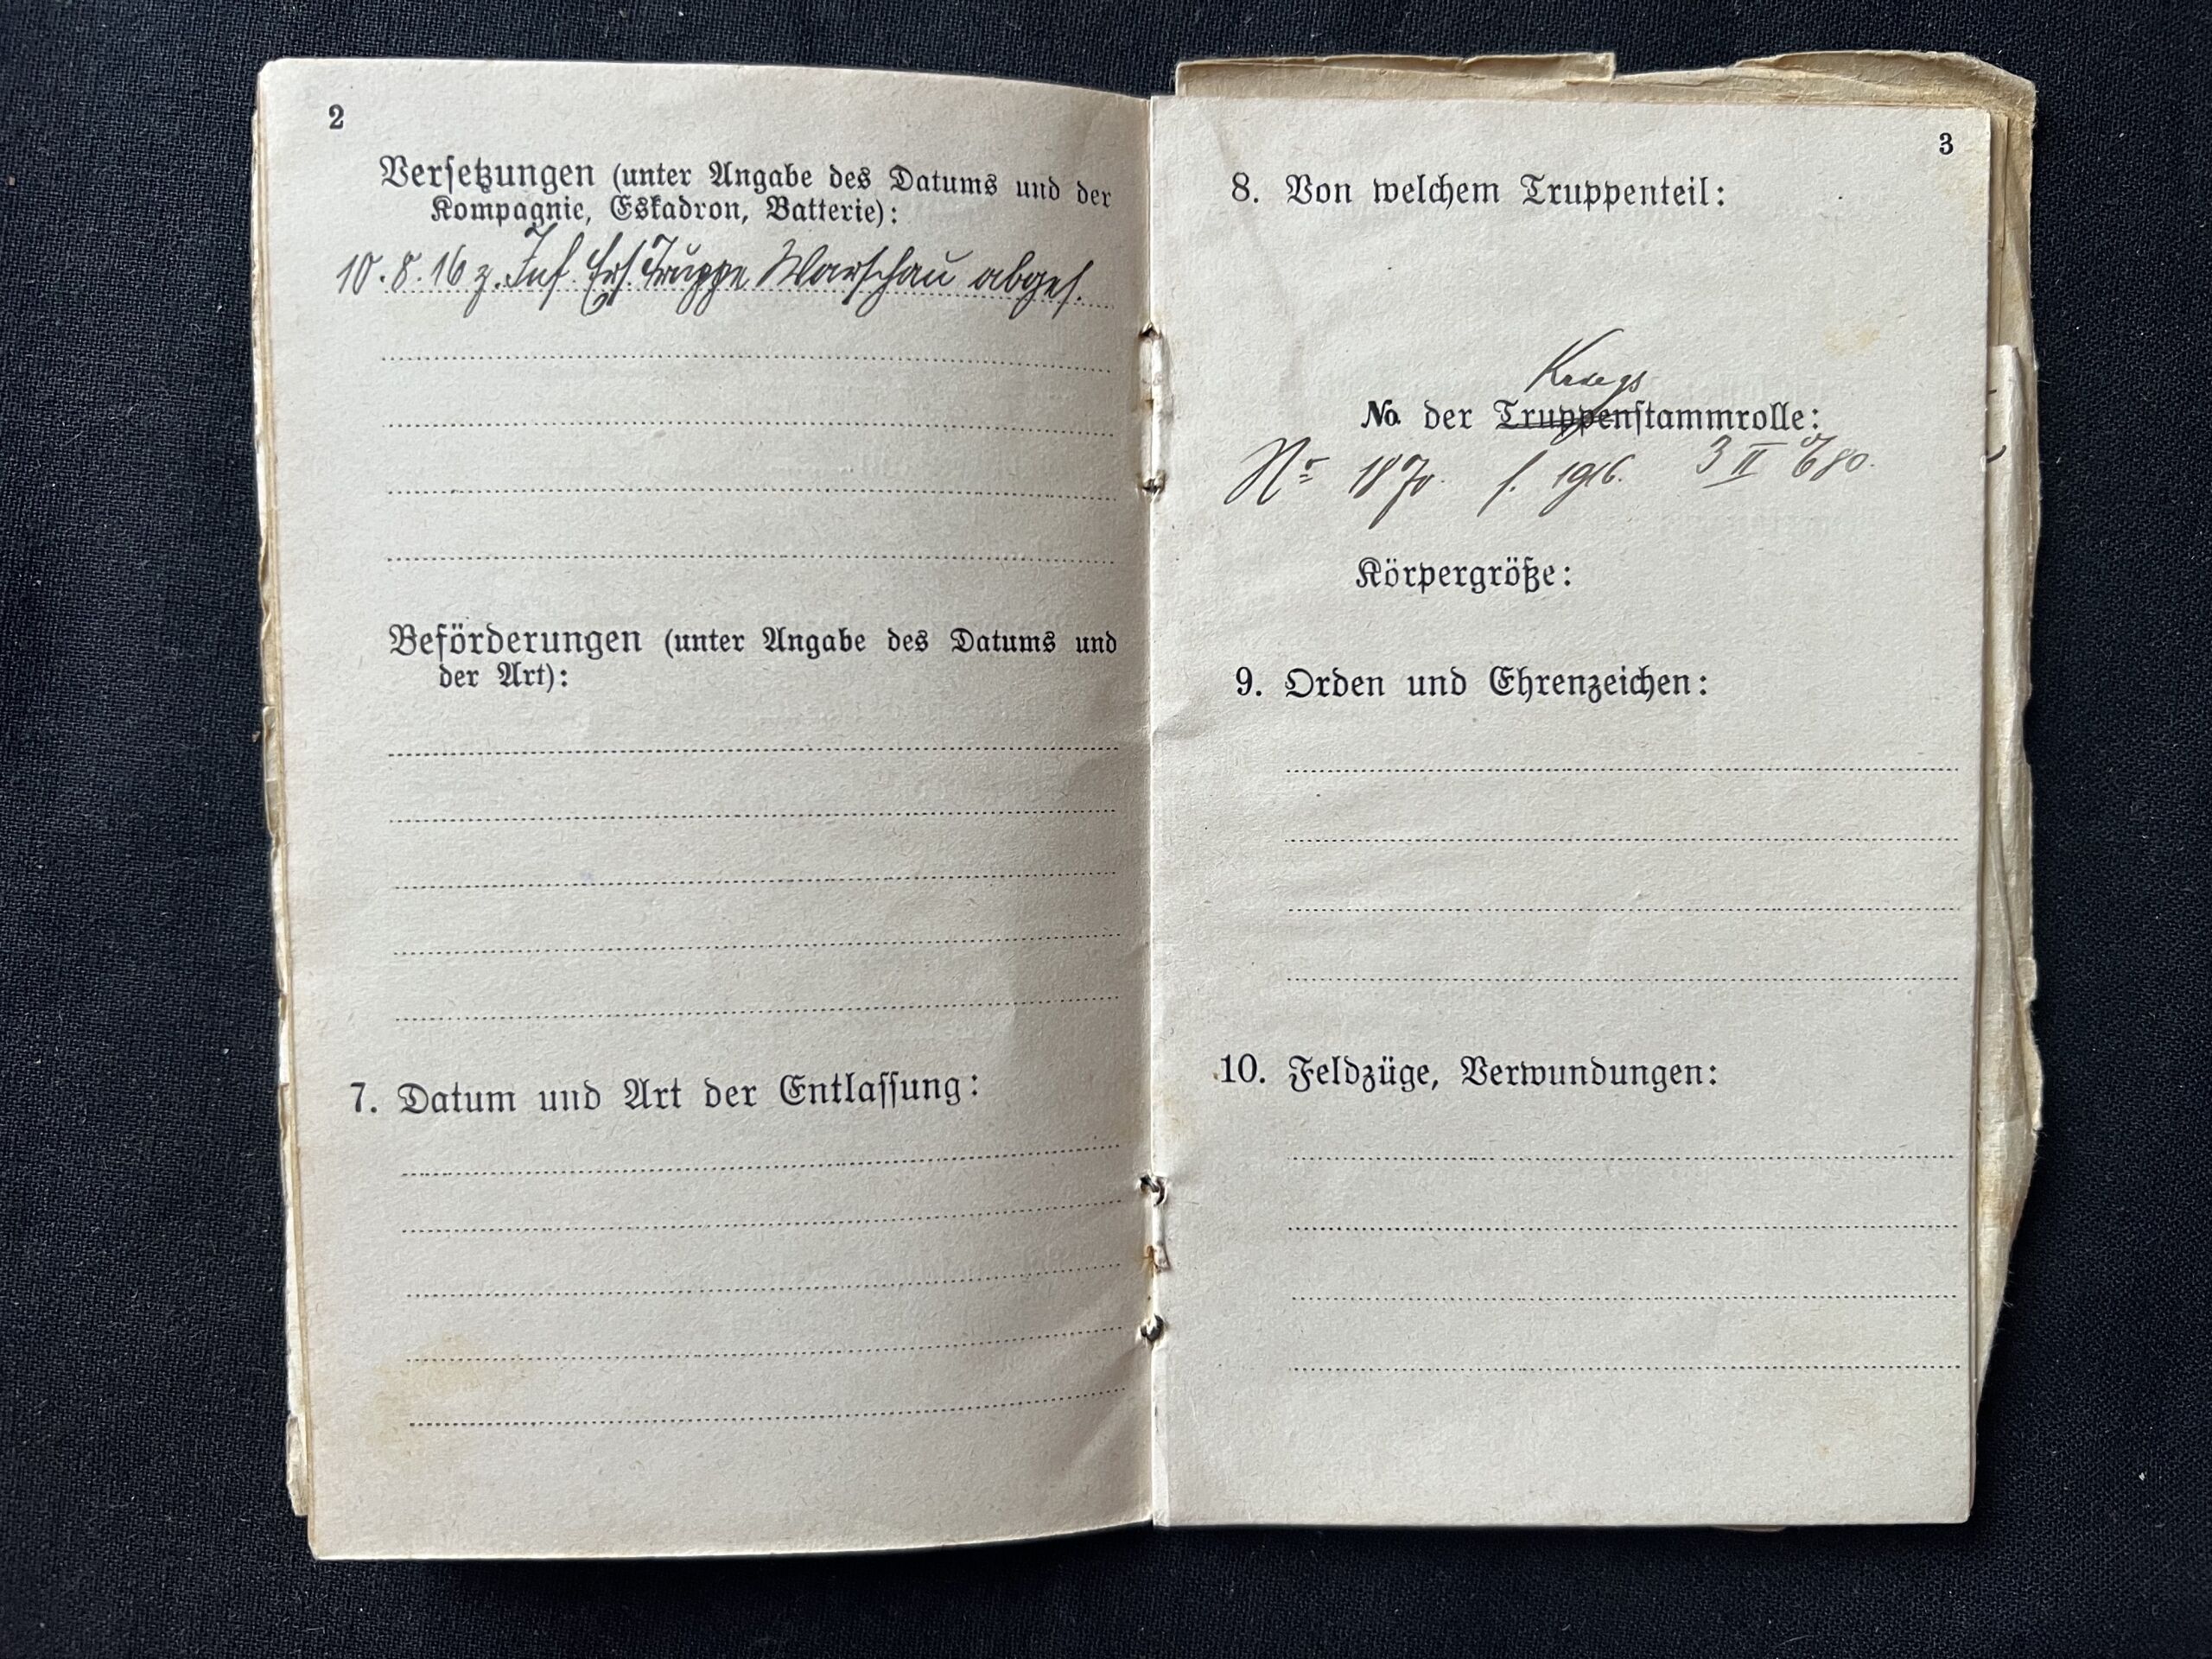 2
Versetzungen (unter Angabe des Datums und der
Kompagnie, Eskadron, Batterie):
10.8.16 z. Inf. Ers. Truppe Warschau abges.
Beförderungen (unter Angabe des Datums und
der Art):
7. Datum und Art der Entlassung:
3
8. Von welchem Truppenteil:
Kriegs
No. der Truppenstammrolle:
Nr 1870. f. 1916. 3 II
Körpergröße:
9. Orden und Ehrenzeichen:
10. Feldzüge, Verwundungen: